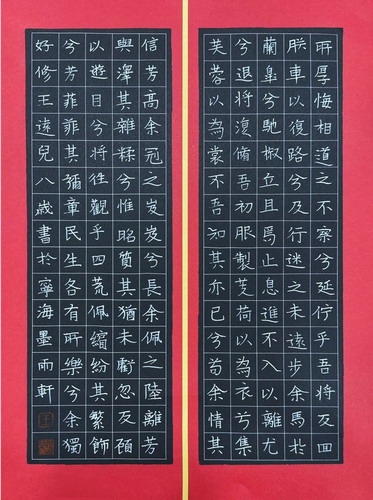 所厚悔相道之不察兮延佇乎吾將反回
朕車以復路兮及行迷之未遠步余馬於
蘭皋兮馳椒丘且焉止息進不入以離尤
兮退將復脩吾初服製芰荷以為衣兮集
芙蓉以為裳不吾知其亦已兮苟余情其
信芳高余冠之岌岌兮長余佩之陸離芳
與澤其雜糅兮惟昭質其猶未虧忽反顧
以遊目兮將往觀乎四荒佩繽紛其繁飾
兮芳菲菲其彌章民生各有所樂兮余獨
好修王遠兒八歲書於寧海墨雨軒